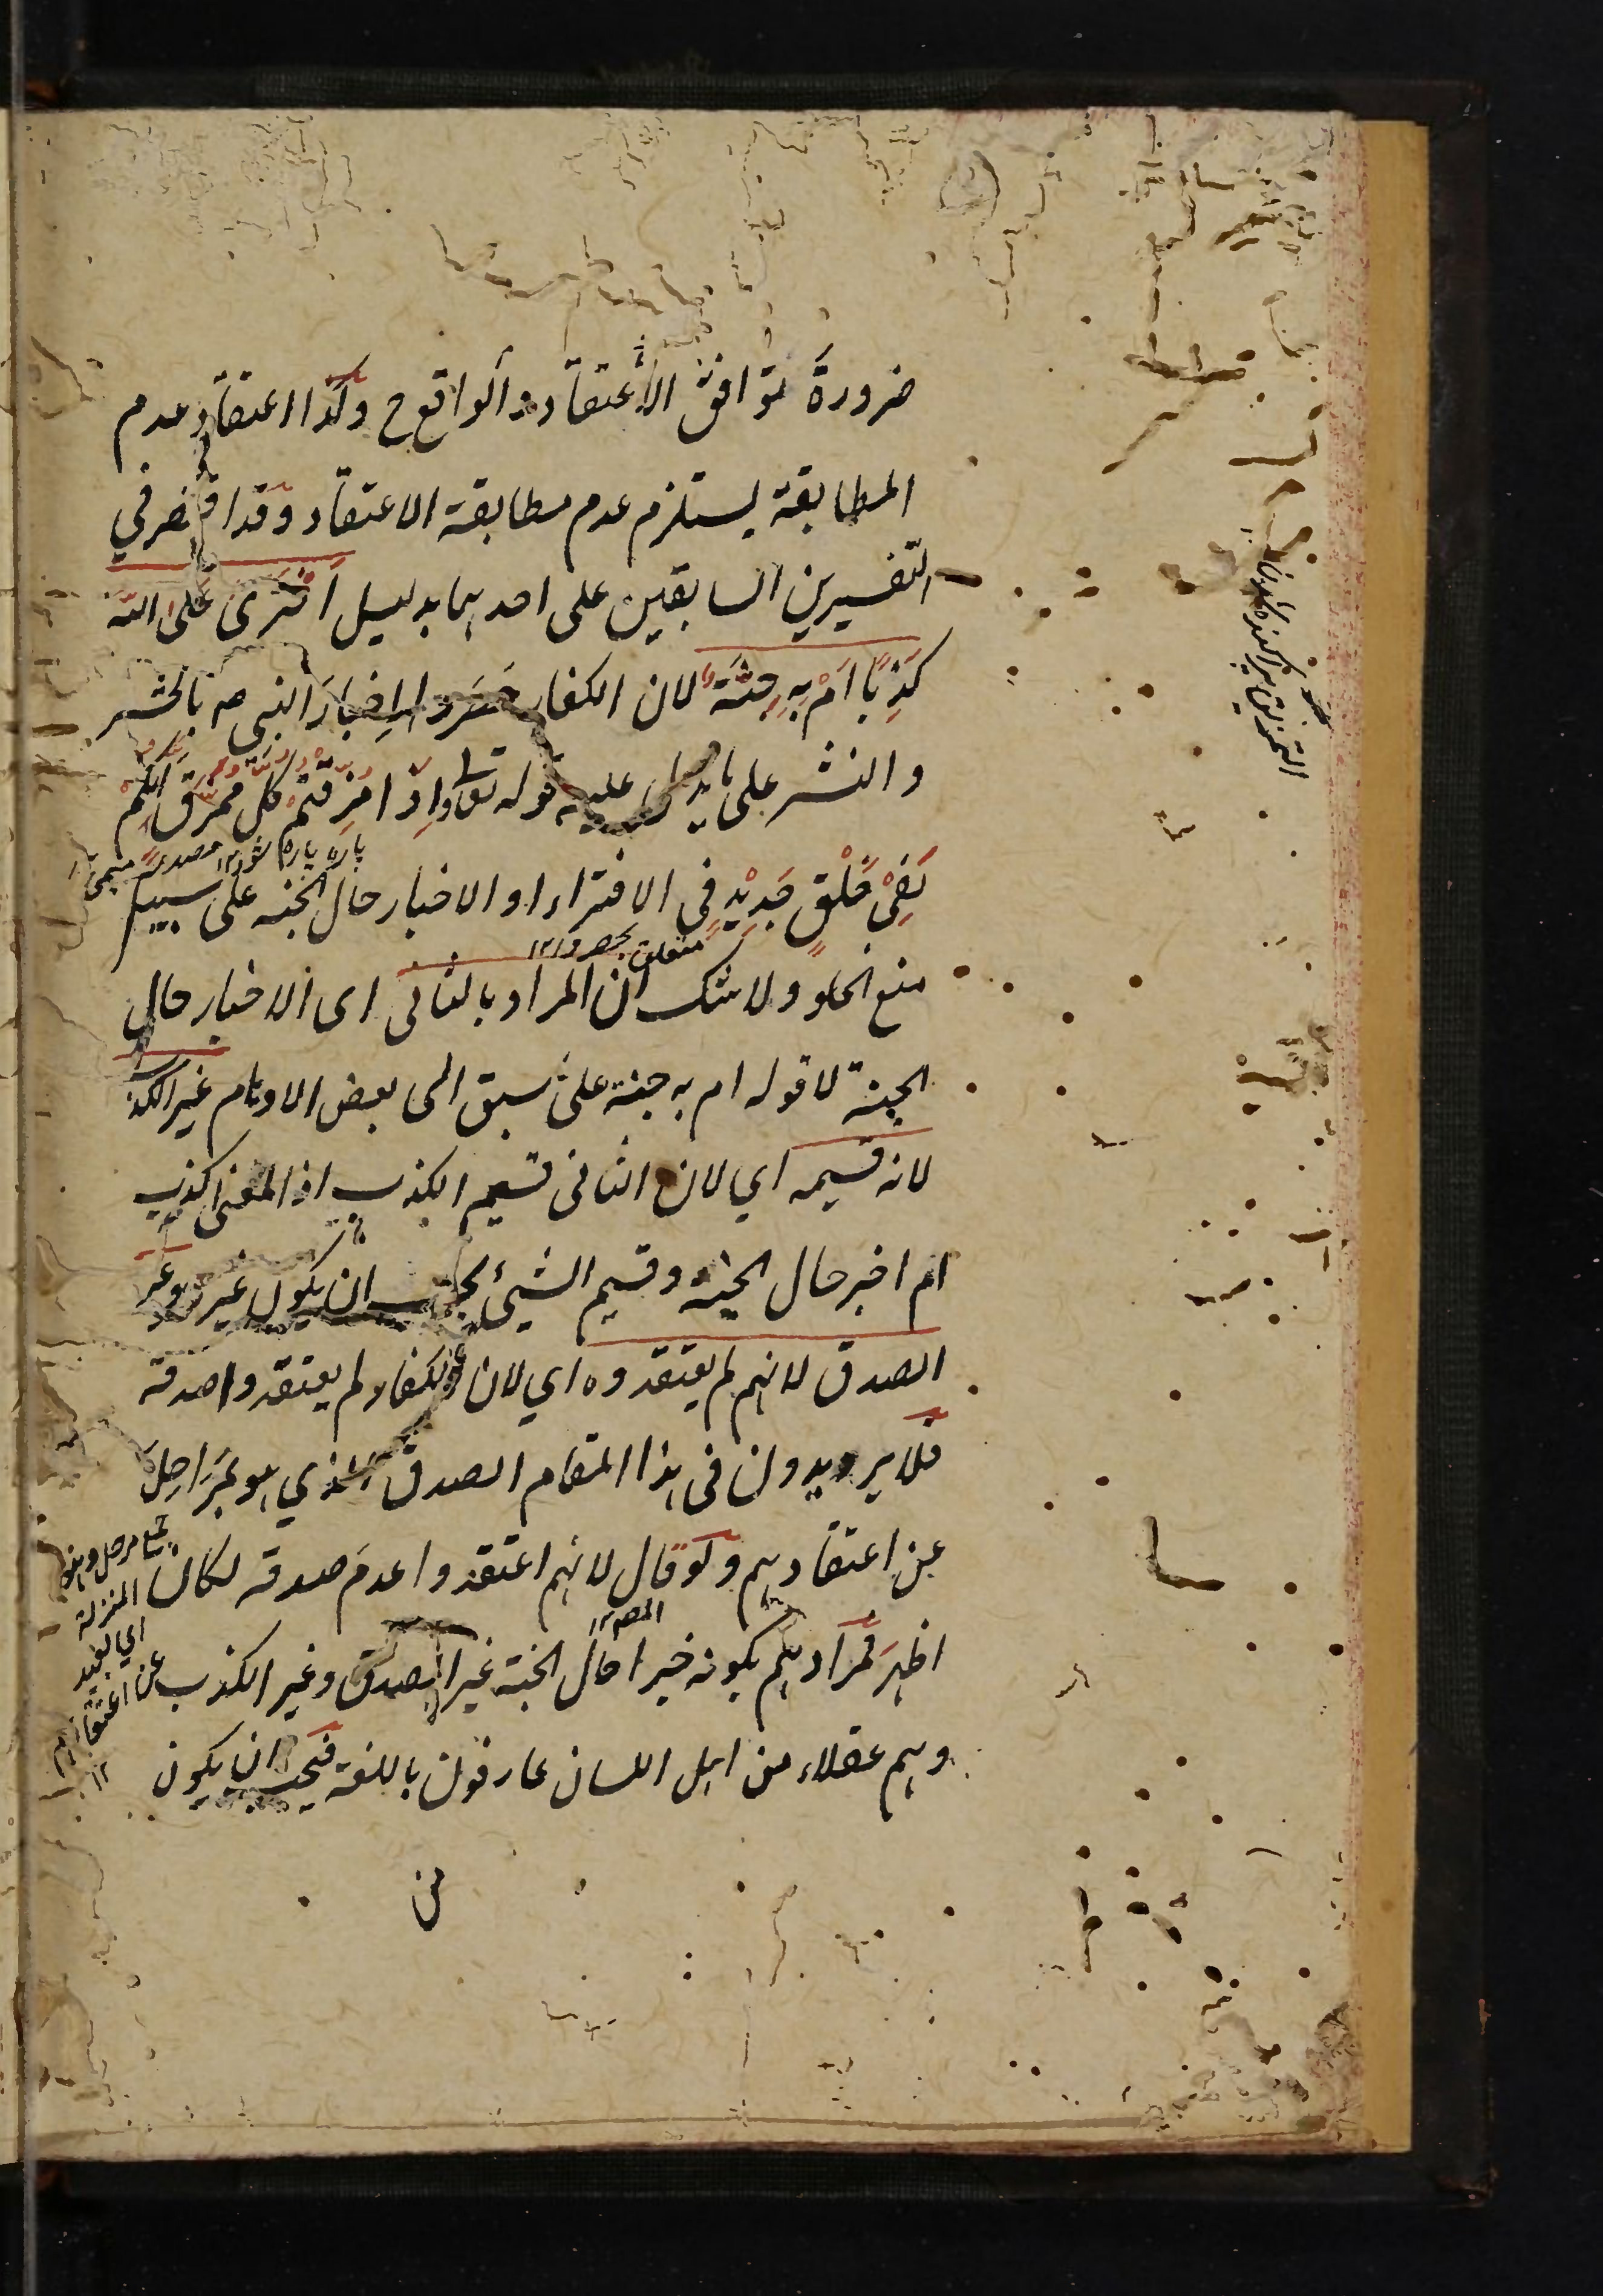 ضرورة توافق الاعتقاد والواقع ح وكذا اعتقاد عدم
المطابقة يستلزم عدم مطابقة الاعتقاد وقد اقتصر في
التفسيرين السابقين على احدهما بدليل اَفْتَرَى عَلَى اللّه
كَذِبًا اَمْ بِهِ جِنَّةٌ لان الكفار حصروا اِخبارَ النبي ص بالحشر
والنشر على ما يدل عليه قوله تعالى اِذَا مُزِّقْتُمْ كُلَّ مُمَزَّقٍ اِنَّكُمْ
پاره پاره شود ١٢ مصدر ميمى
لَفِيْ خَلْقٍ جَدِيْدٍ فى الافتراء او الاخبار حال الجنة على سبيل
متعلق بحصروا ١٢
منع الخلو ولا شك ان المراد بالثانى اى الاخبار حال
الجنة لا قوله ام به جنة على سبق الى بعض الاوهام غير الكذب
لانه قسيمه اي لان الثانى قسيم الكذب اذ المعنى اكذب
ام اخبر حال الجنة وقسيم الشيئ يجب ان يكون غيره وغير
الصدق لانهم لم يعتقدوه اي لان الكفار لم يعتقدوا صدقه
فلا يريدون فى هذا المقام الصدق الذي هو بمَرَاحِلَ
عن اعتقادهم ولو قال لانهم اعتقدوا عدمَ صدقه لكان
اظهرَ فمرادهم بكونه خبرا حال الجنة غير الصدق وغير الكذب
المص ١٢
وهم عقلاء من اهل اللسان عارفون باللغة فيجب ان يكون
من
المنزلة
اي بعيد
عن اعتقادهم
١٢